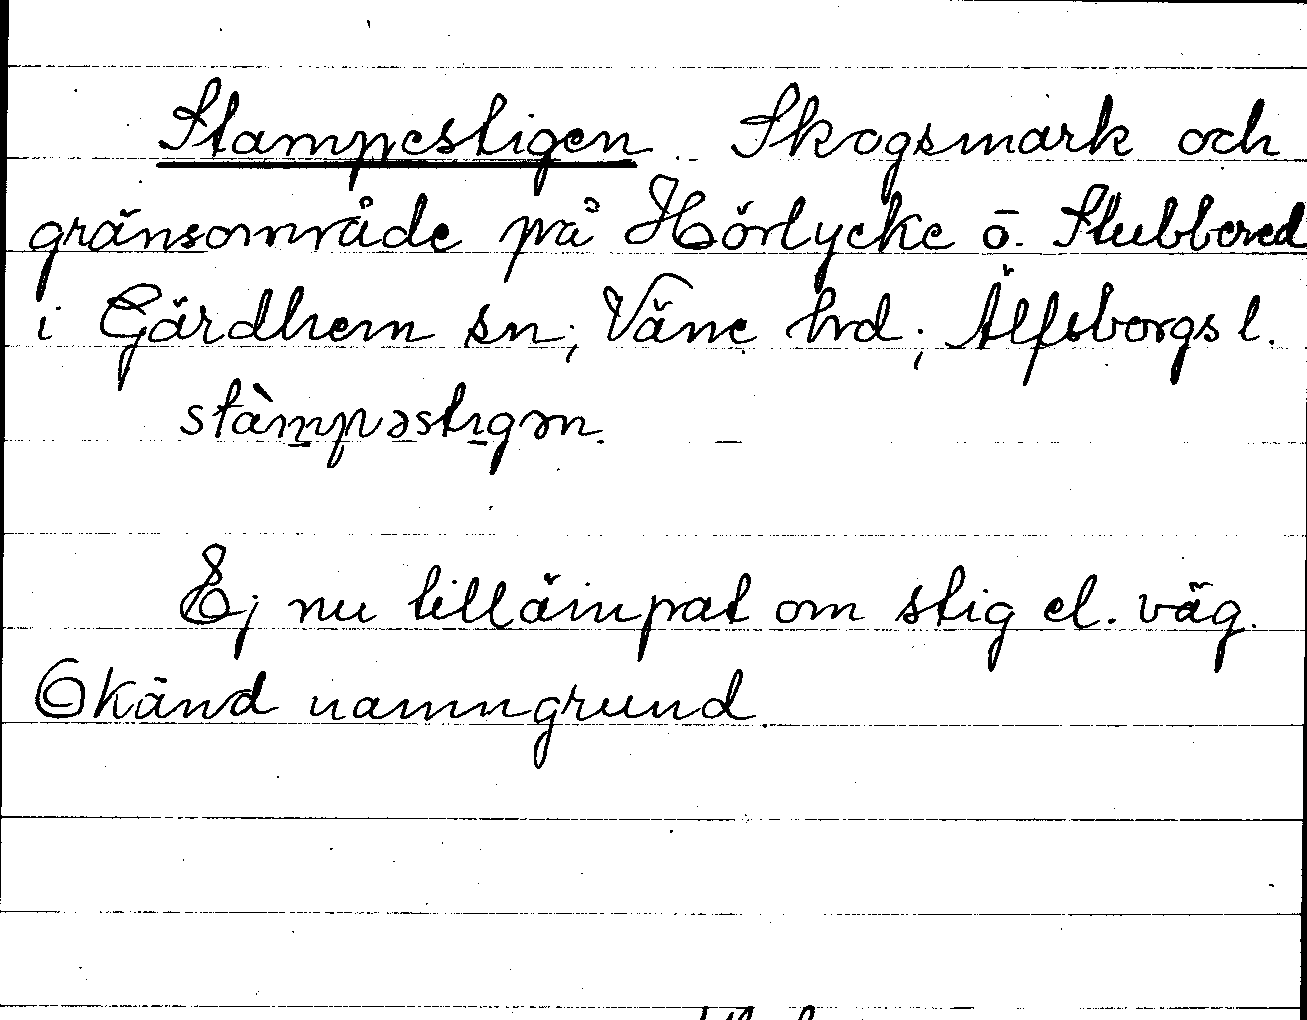 Stampestigen Skogsmark och
gränsområde på Hörlycke ö. Stubbered
i Gärdhem sn; Väne hrd; Älfsborgs l.
stàmpəstıgən.
Ej nu tillämpat om stig el. väg.
Okänd namngrund.